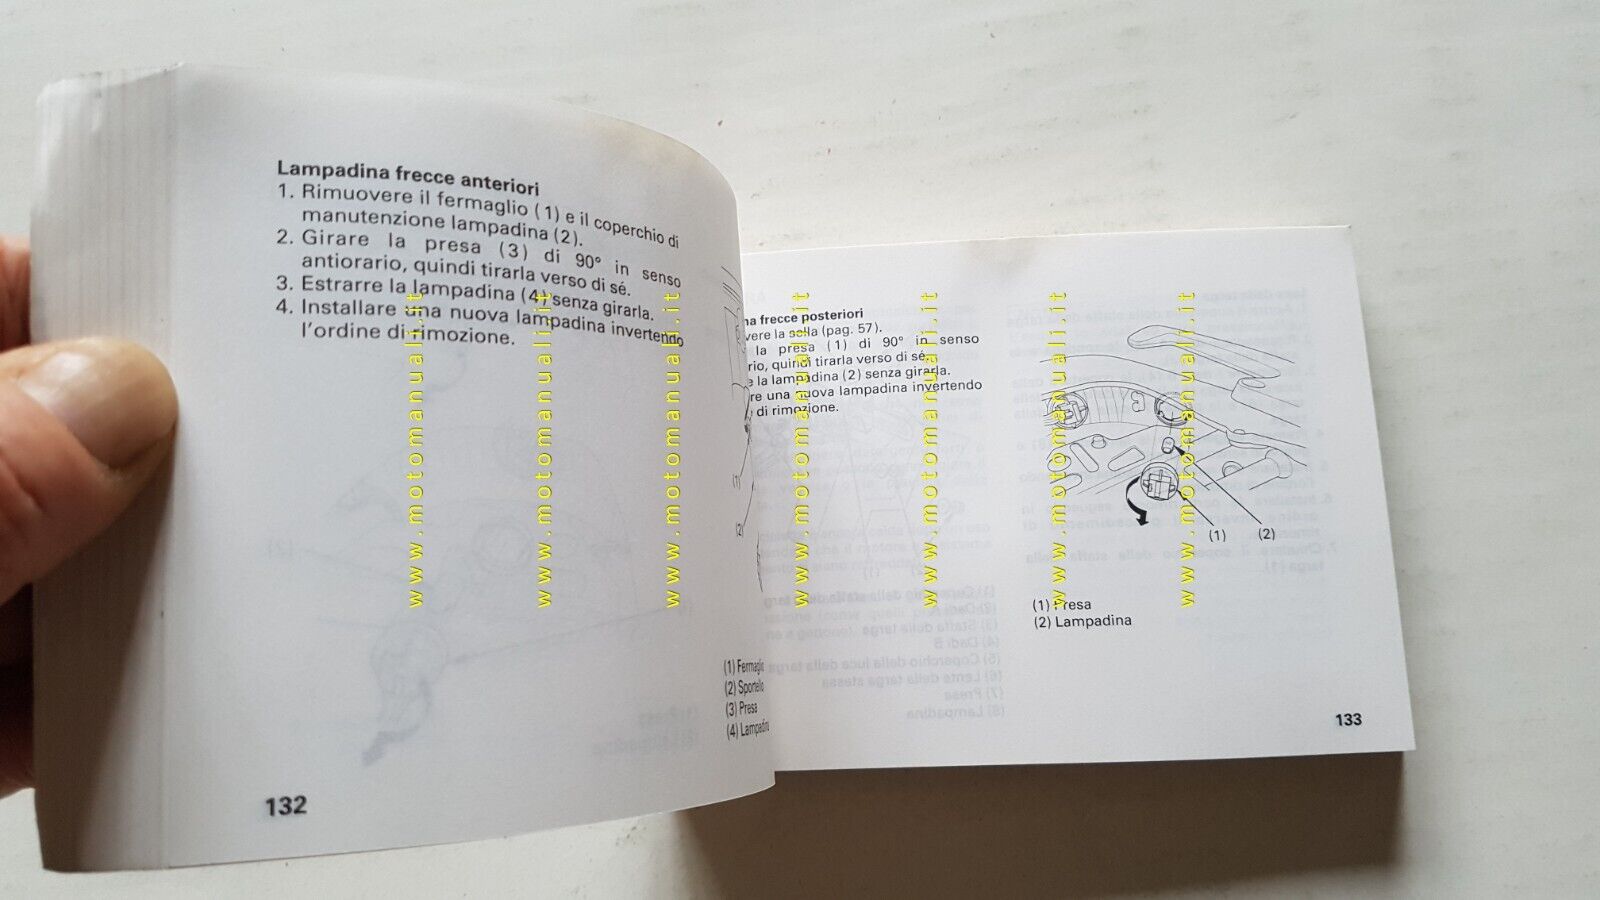 Lampadina frecce anteriori
1. Rimuovere il fermaglio (1) e il coperchio di
manutenzione lampadina (2).
2. Girare la presa (3) di 90° in senso
antiorario, quindi tirarla verso di sé.
3. Estrarre la lampadina (4) senza girarla.
4. Installare una nuova lampadina invertendo
l'ordine di rimozione.
(1)
(2)
(1) Fermaglio
(2) Sportello
(3) Presa
(4) Lampadina
132
na frecce posteriori
vere la sella (pag. 57).
la presa (1) di 90° in senso
rio, quindi tirarla verso di sé.
e la lampadina (2) senza girarla.
re una nuova lampadina invertendo
di rimozione.
(1) (2)
(1) Presa
(2) Lampadina
133
www.motomanuali.it
www.motomanuali.it
www.motomanuali.it
www.motomanuali.it
www.motomanuali.it
www.motomanuali.it
www.motomanuali.it